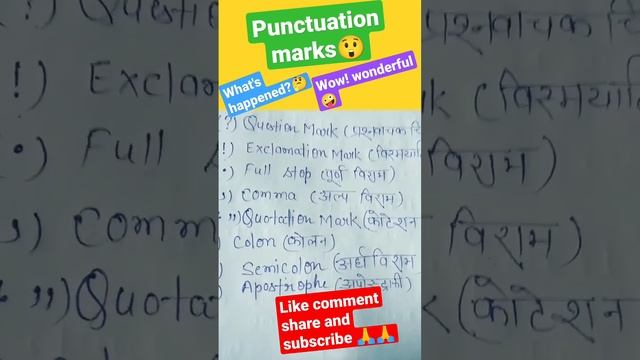 Punctuation
marks😲
What's
happened?🤔
Wow! wonderful
🤪
?) Question Mark (प्रश्नवाचक चि
!) Exclamation Mark (विस्मयादि
.) Full Stop (पूर्ण विराम)
,) Comma (अल्प विराम)
,,) Quotation Mark (कोटेशन
) Colon (कोलन)
) Semicolon (अर्ध विराम
) Apostrophe (अपोस्ट्रोफी)
Like comment
share and
subscribe 🙏🙏